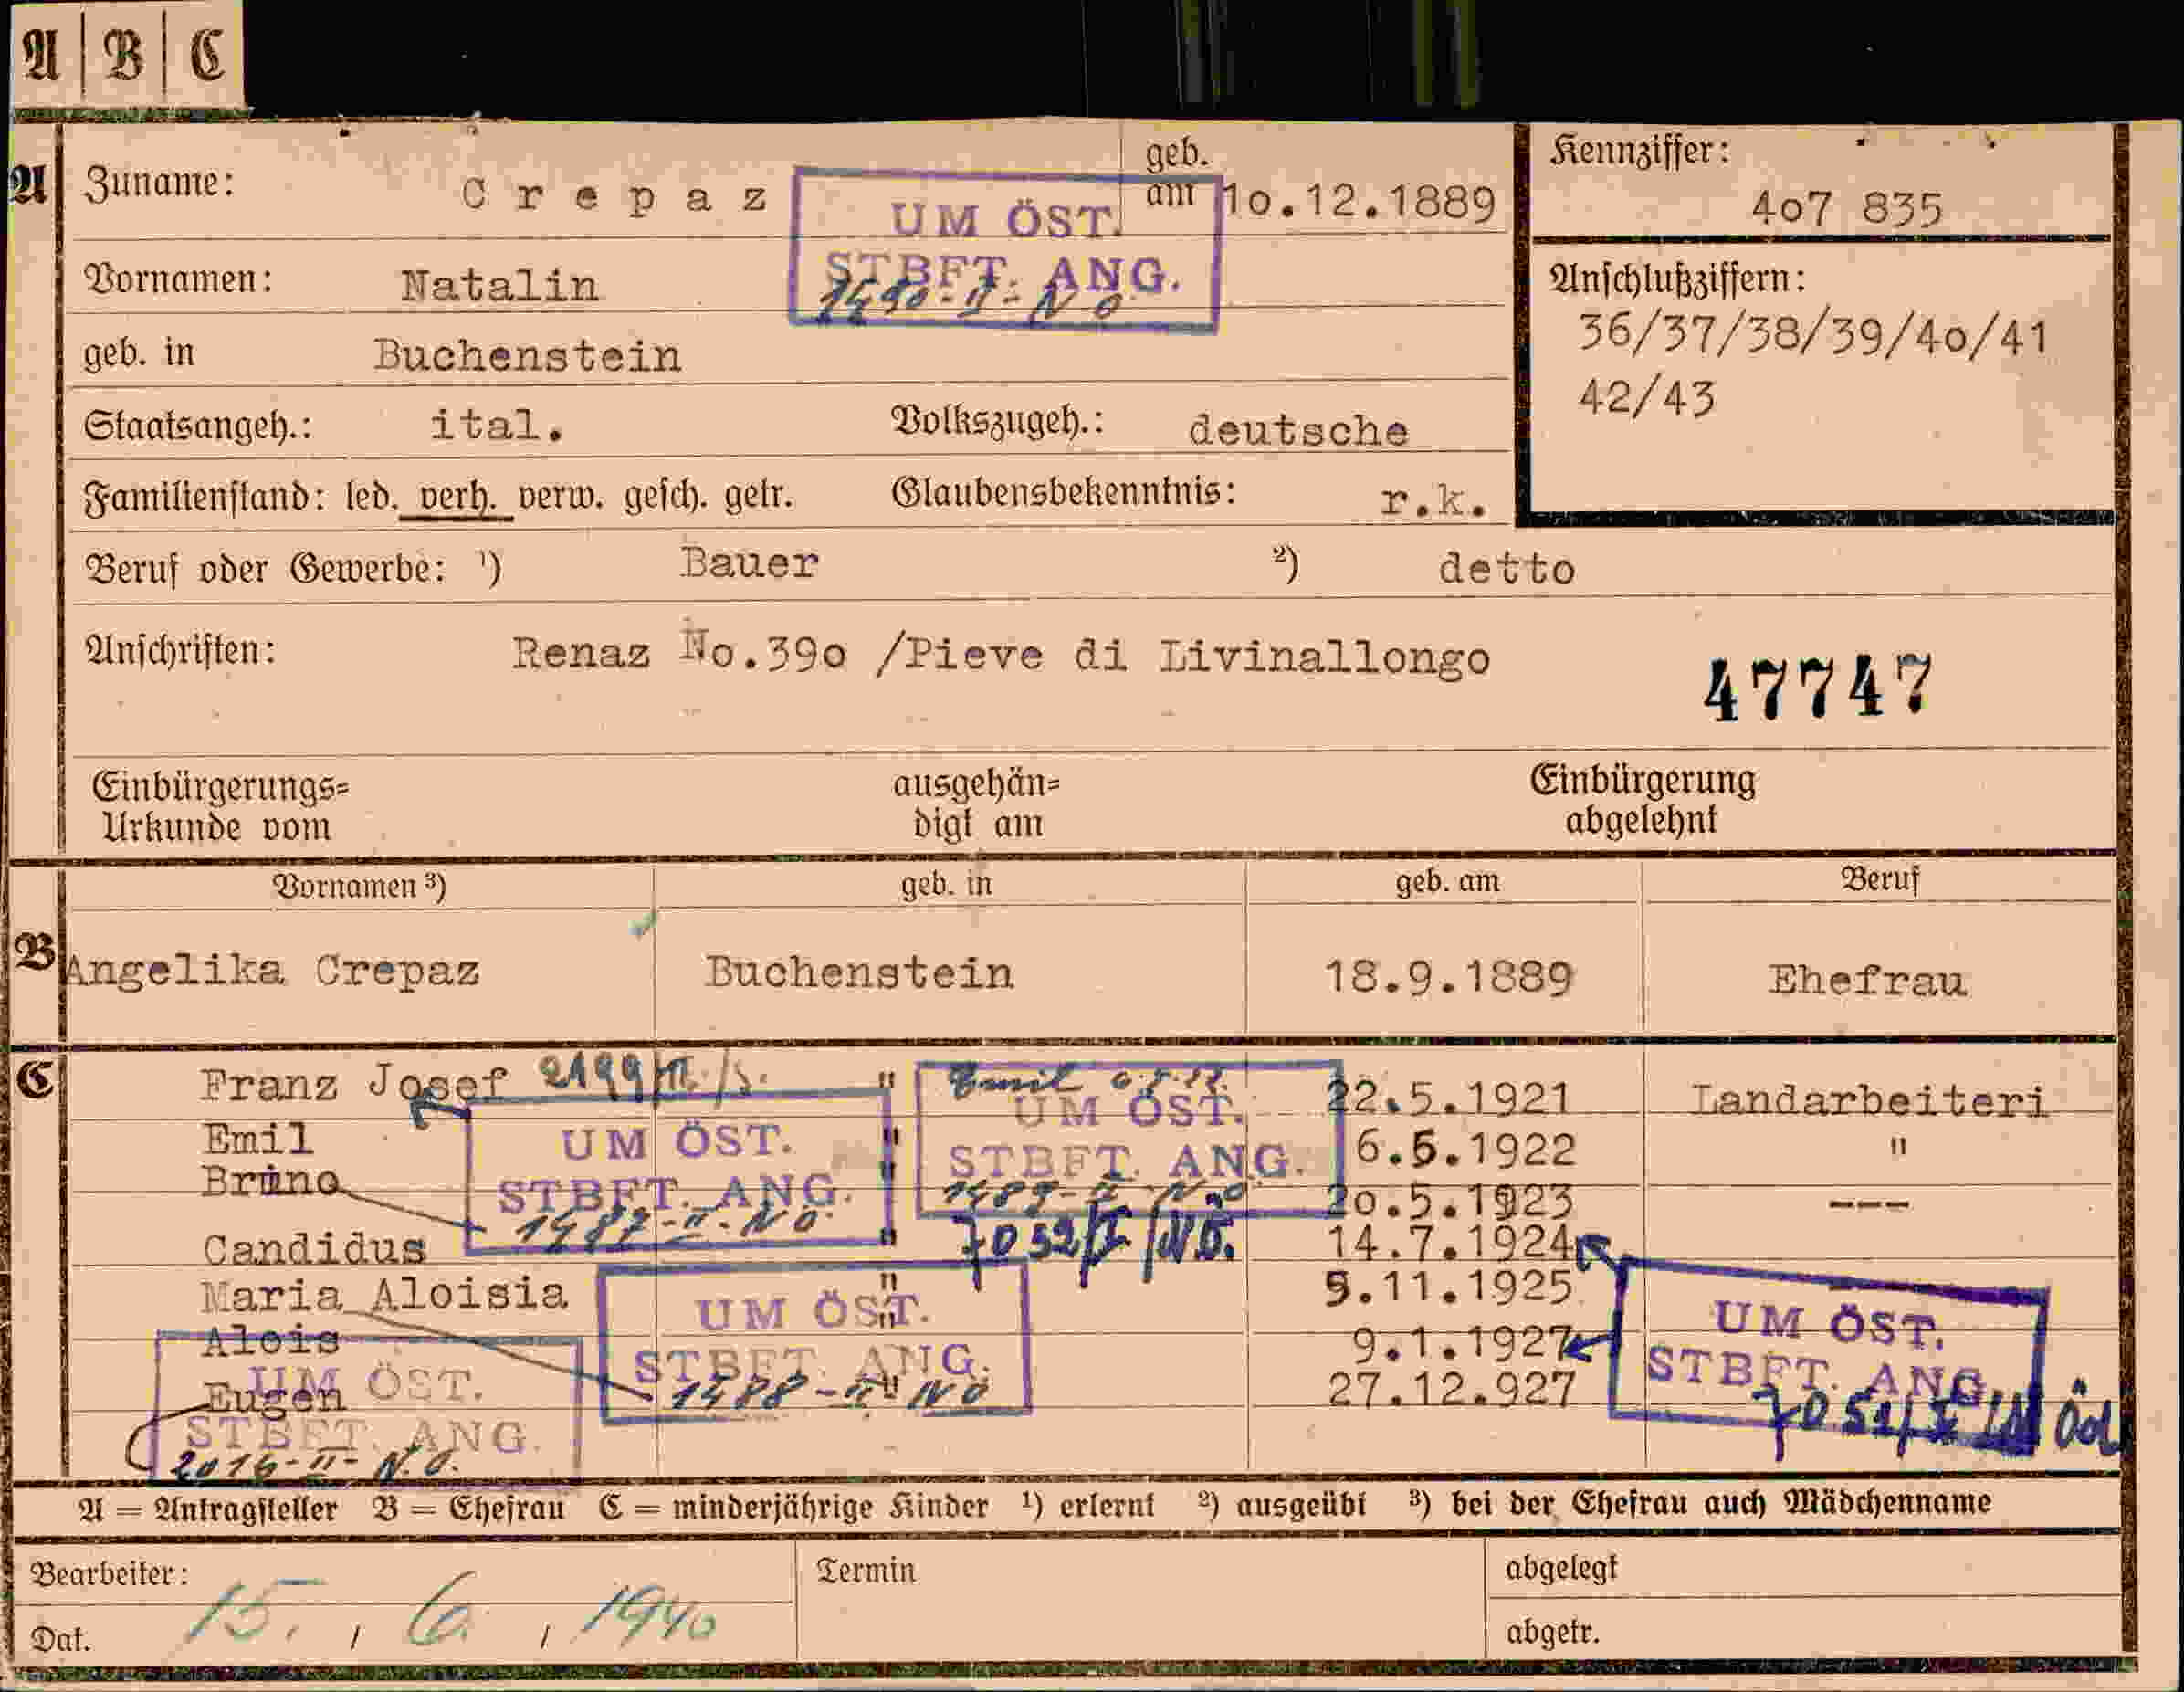 A | B | C
A Zuname: Crepaz geb. am 10.12.1889 Kennziffer: 407 835
UM ÖST.
STBFT. ANG.
1490-II-NÖ
Vornamen: Natalin Anschlußziffern:
36/37/38/39/40/41
42/43
geb. in Buchenstein
Staatsangeh.: ital. Volkszugeh.: deutsche
Familienstand: led. verh. verw. gesch. getr. Glaubensbekenntnis: r.k.
Beruf oder Gewerbe: ¹) Bauer ²) detto
Anschriften: Renaz No.390 /Pieve di Livinallongo
47747
Einbürgerungs= ausgehän= Einbürgerung
Urkunde vom digt am abgelehnt
Vornamen ³) geb. in geb. am Beruf
B Angelika Crepaz Buchenstein 18.9.1889 Ehefrau
C Franz Josef " 22.5.1921 Landarbeiteri
Emil " 6.5.1922 "
Bruno " 20.5.1923 ---
Candidus " 14.7.1924
Maria Aloisia " 9.11.1925
Alois " 9.1.1927
Eugen " 27.12.927
Emil
UM ÖST.
STBFT. ANG.
1489-II-NÖ
7052/I/NÖ.
UM ÖST.
STBFT. ANG.
1487-II-NÖ
UM ÖST.
STBFT. ANG.
1488-II-NÖ
UM ÖST.
STBFT. ANG.
7051/I
UM ÖST.
STBFT. ANG.
2016-II-N.Ö.
A = Antragsteller B = Ehefrau C = minderjährige Kinder ¹) erlernt ²) ausgeübt ³) bei der Ehefrau auch Mädchenname
Bearbeiter: Termin abgelegt
Dat. 15. / 6. / 1940 abgetr.